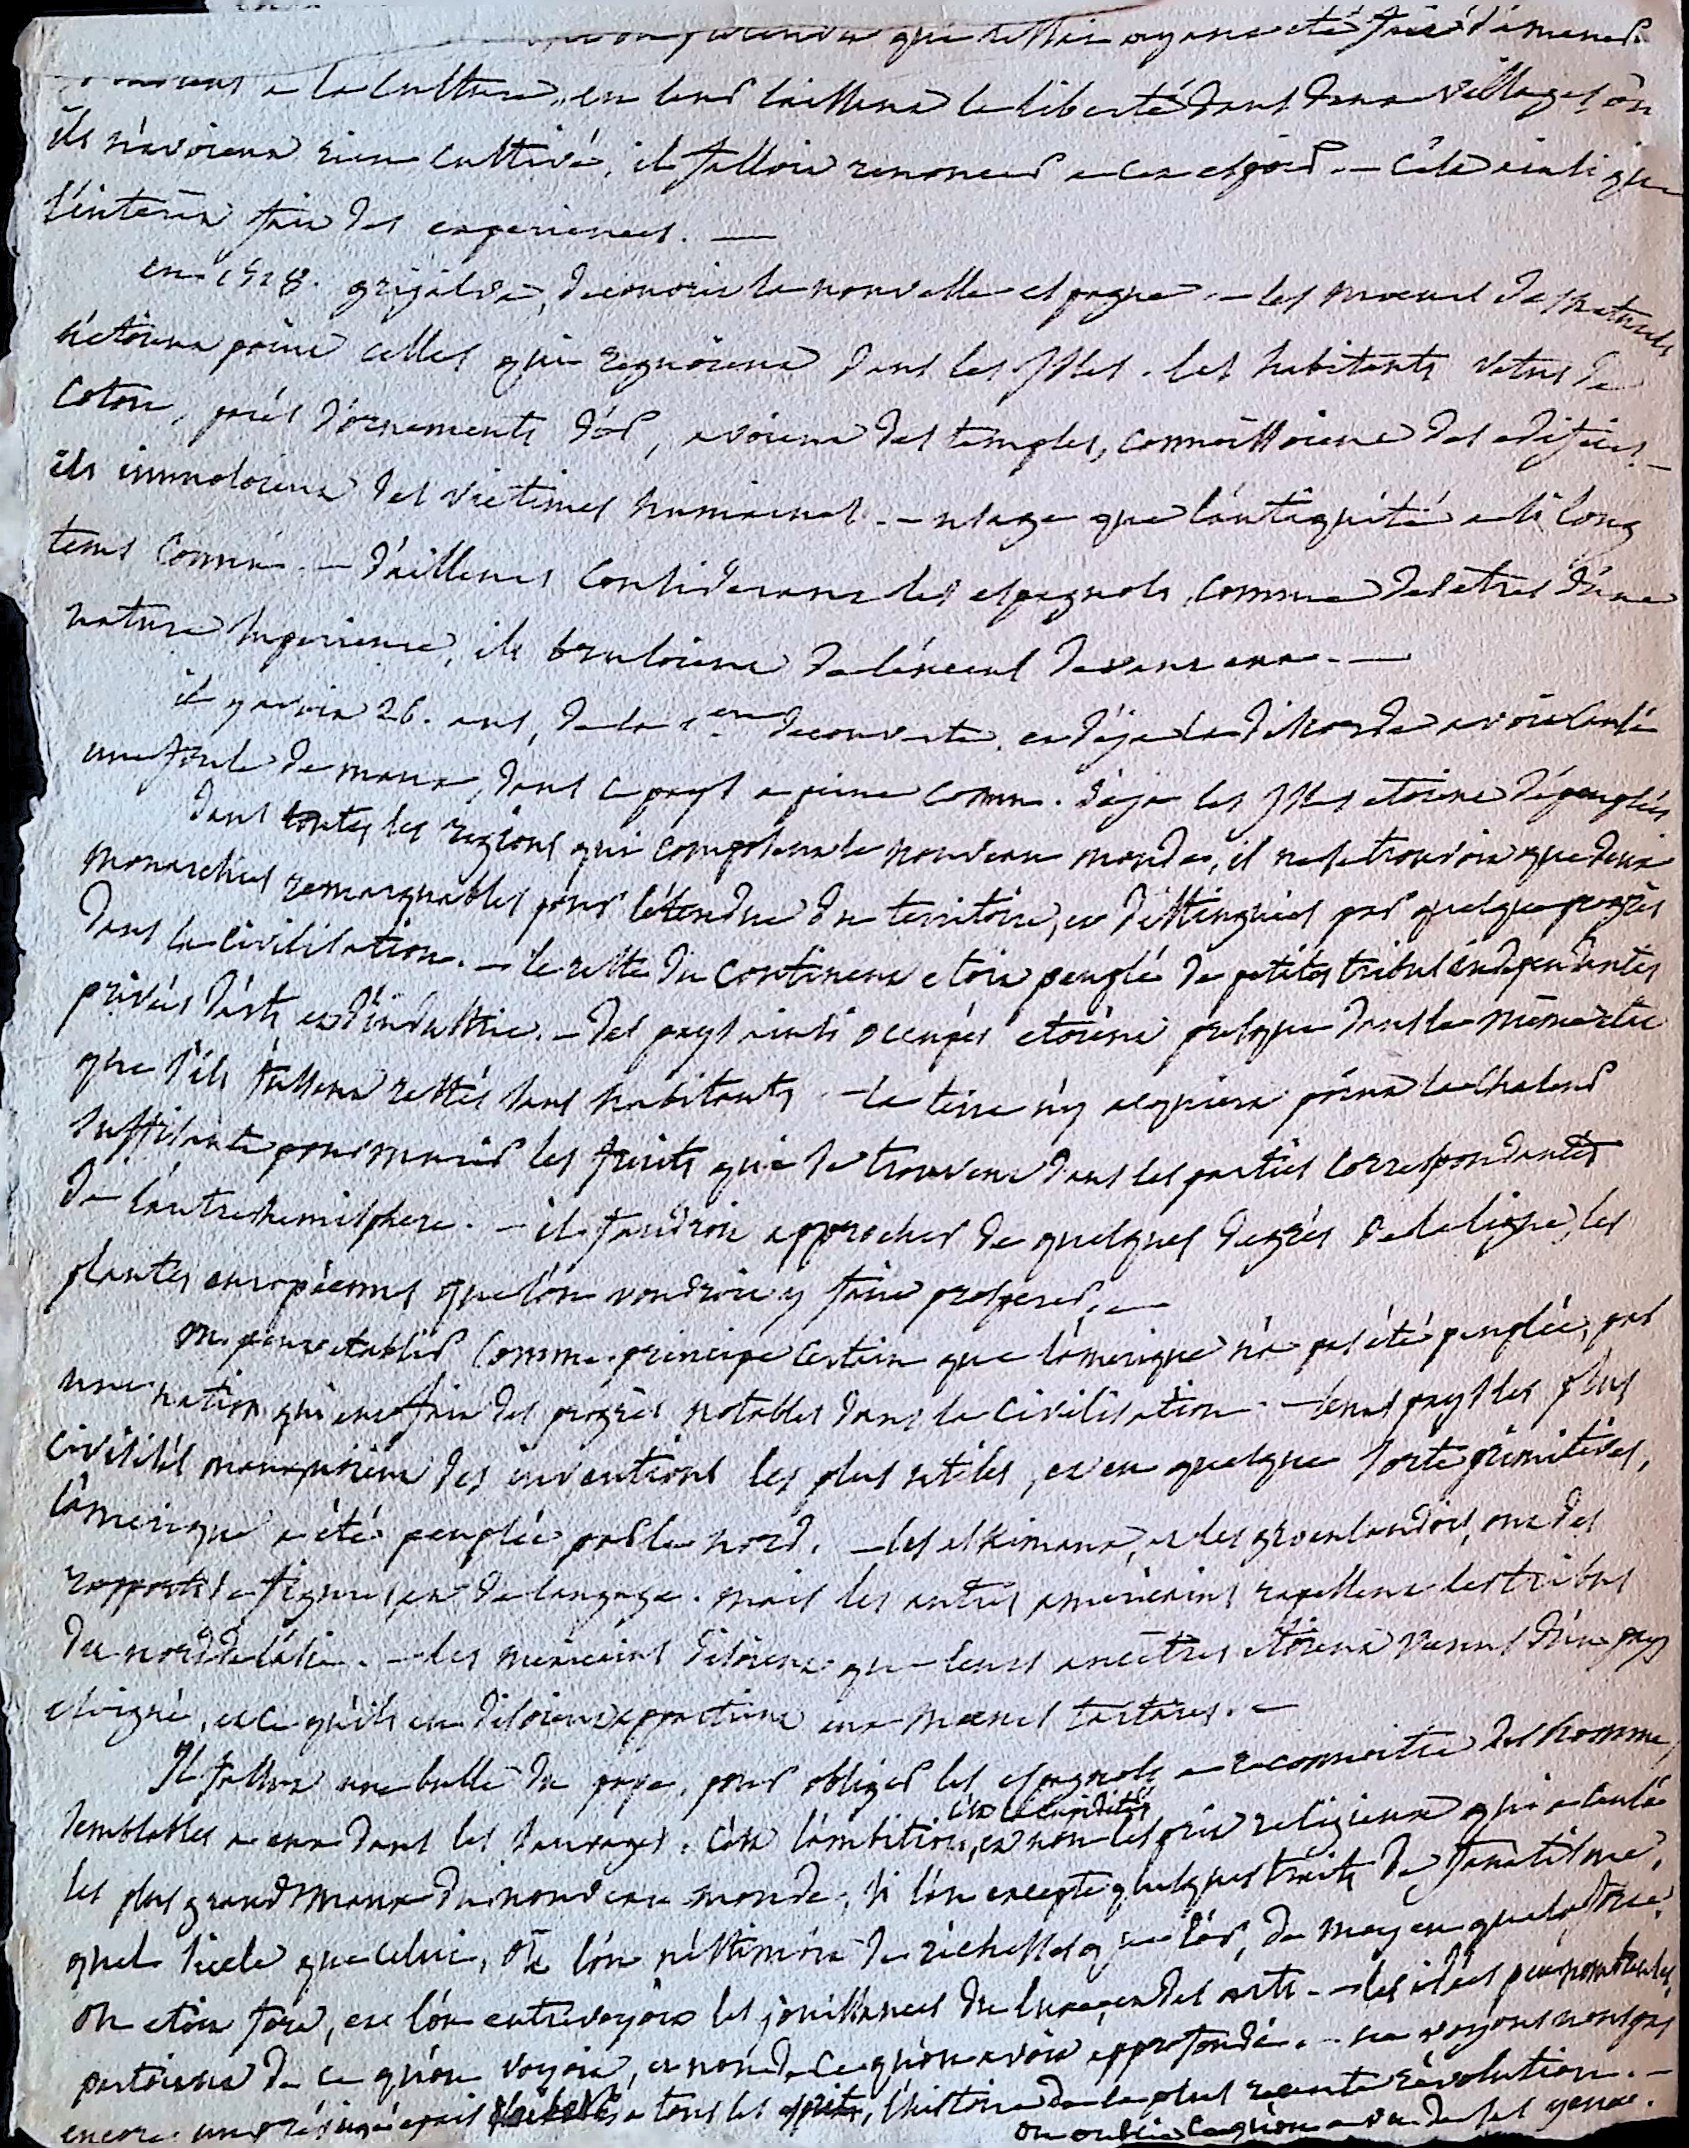 que l'essai ayant été fait d'amener
à la culture, en leur laissant la liberté dans deux villages où
ils n'avoient rien cultivé, il falloit renoncer à cet espoir. — C'est ainsi que
l'intérêt fait des experiences. —
en 1518. grijalva, decouvrit la nouvelle espagne. — les moeurs des naturels
n'étoient point celles qui regnoient dans les Isles. les habitants vetus de
coton, parés d'ornements d'or, avoient des temples, connoissoient des edifices. —
ils immoloient des victimes humaines. — usage que l'antiquité a si long
tems connu. — d'ailleurs considerant les espagnols, comme des etres d'une
nature superieure, ils bruloient de l'encens devant eux. —
il y avoit 26. ans, de la 1ere decouverte, et déja la discorde avoit causé
une foule de maux, dans ce pays a peine connu. déja les Isles etoient dépeuplées
dans toutes les regions qui composent le nouveau monde, il ne se trouvoit que deux
monarchies remarquables pour l'étendue du territoire, et distinguées par quelque progrès
dans la civilisation. — le reste du continent etoit peuplé de petites tribus indépendantes
privées d'arts et d'industrie. — des pays ainsi occupés etoient presque dans le même etat
que s'ils fussent restés sans habitants. — la terre n'y acquiert point la chaleur
suffisante pour murir les fruits qui se trouvent dans les parties correspondantes
de l'autre hemisphere. — il faudroit approcher de quelques degrés de la ligne, les
plantes européennes que l'on voudroit y faire prosperer. —
on peut etablir comme principe certain que l'amerique n'a pas été peuplée, par
une nation qui eut fait des progrès notables dans la civilisation. — leurs pays les plus
civilisés manquoient des inventions les plus utiles, et en quelque sorte primitives,
l'amerique a été peuplée par le nord. — les eskimaux, et les groenlandois, ont des
rapports de figures, et de langage. mais les autres américains rapellent les tribus
du nord de l'asie. — les mexicains disoient que leurs ancêtres etoient venus d'un pays
eloigné, et ce qu'ils en disoient appartient aux moeurs tartares. —
Il fallut une bulle du pape, pour obliger les espagnols a reconnoitre des hommes
semblables a eux dans les sauvages. c'est l'ambition, c'est la cupidité, et non l'esprit religieux qui a causé
les plus grands maux du nouveau monde, si l'on excepte quelques traits de fanatisme.
quel siecle que celui, où l'on n'estimoit de richesses que l'or, de moyen que la force,
on etoit foré, et l'on entrevoyoit les jouissances du luxe, et des arts. — les idées peu nombreuses,
partoient de ce qu'on voyoit, et non de ce qu'on avoit approfondi. — ne voyons nous pas
encore un préjugé a tous les esprits, l'histoire de la plus recente révolution. —
on oublie ce qu'on a vu de ses yeux.